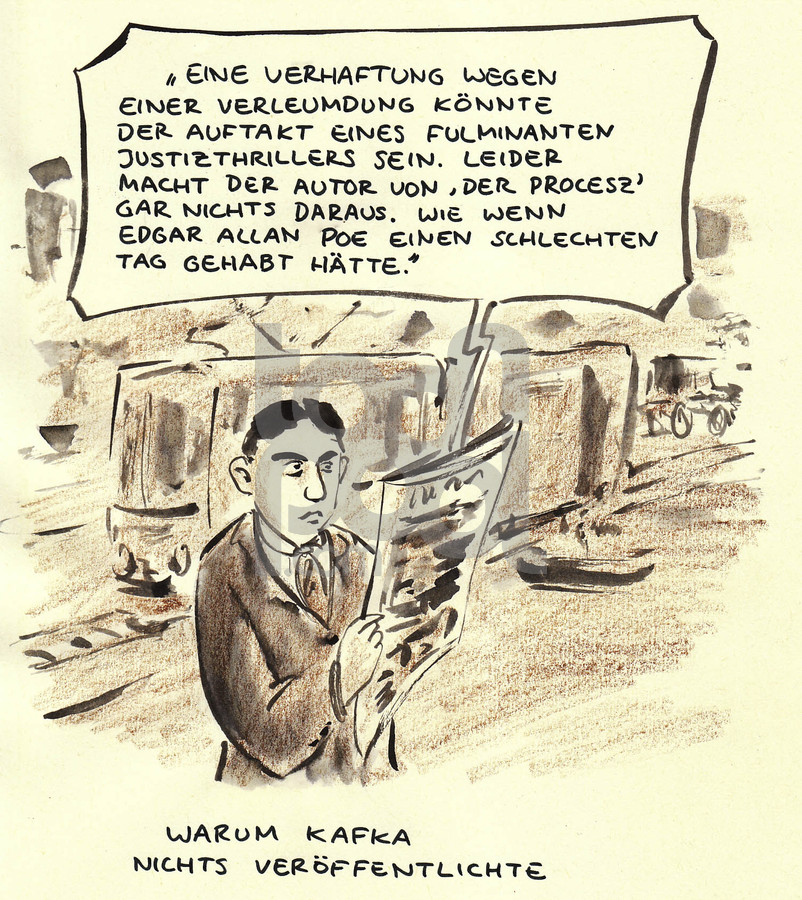 „EINE VERHAFTUNG WEGEN
EINER VERLEUMDUNG KÖNNTE
DER AUFTAKT EINES FULMINANTEN
JUSTIZTHRILLERS SEIN. LEIDER
MACHT DER AUTOR VON ‚DER PROCESZ'
GAR NICHTS DARAUS. WIE WENN
EDGAR ALLAN POE EINEN SCHLECHTEN
TAG GEHABT HÄTTE."
WARUM KAFKA
NICHTS VERÖFFENTLICHTE